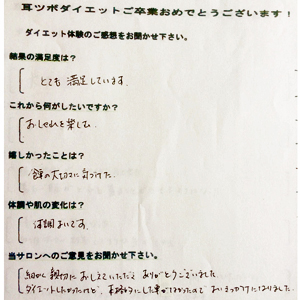 耳ツボダイエットご卒業おめでとうございます!
ダイエット体験のご感想をお聞かせ下さい。
結果の満足度は?
とても満足しています。
これから何がしたいですか?
おしゃれを楽しむ
嬉しかったことは?
食の大切さに気づけた
体調や肌の変化は?
体調よいです。
当サロンへのご意見をお聞かせ下さい。
細かく親切におしえていただてありがとうございました
ダイエットしたかったけど、
きっかけになりました。